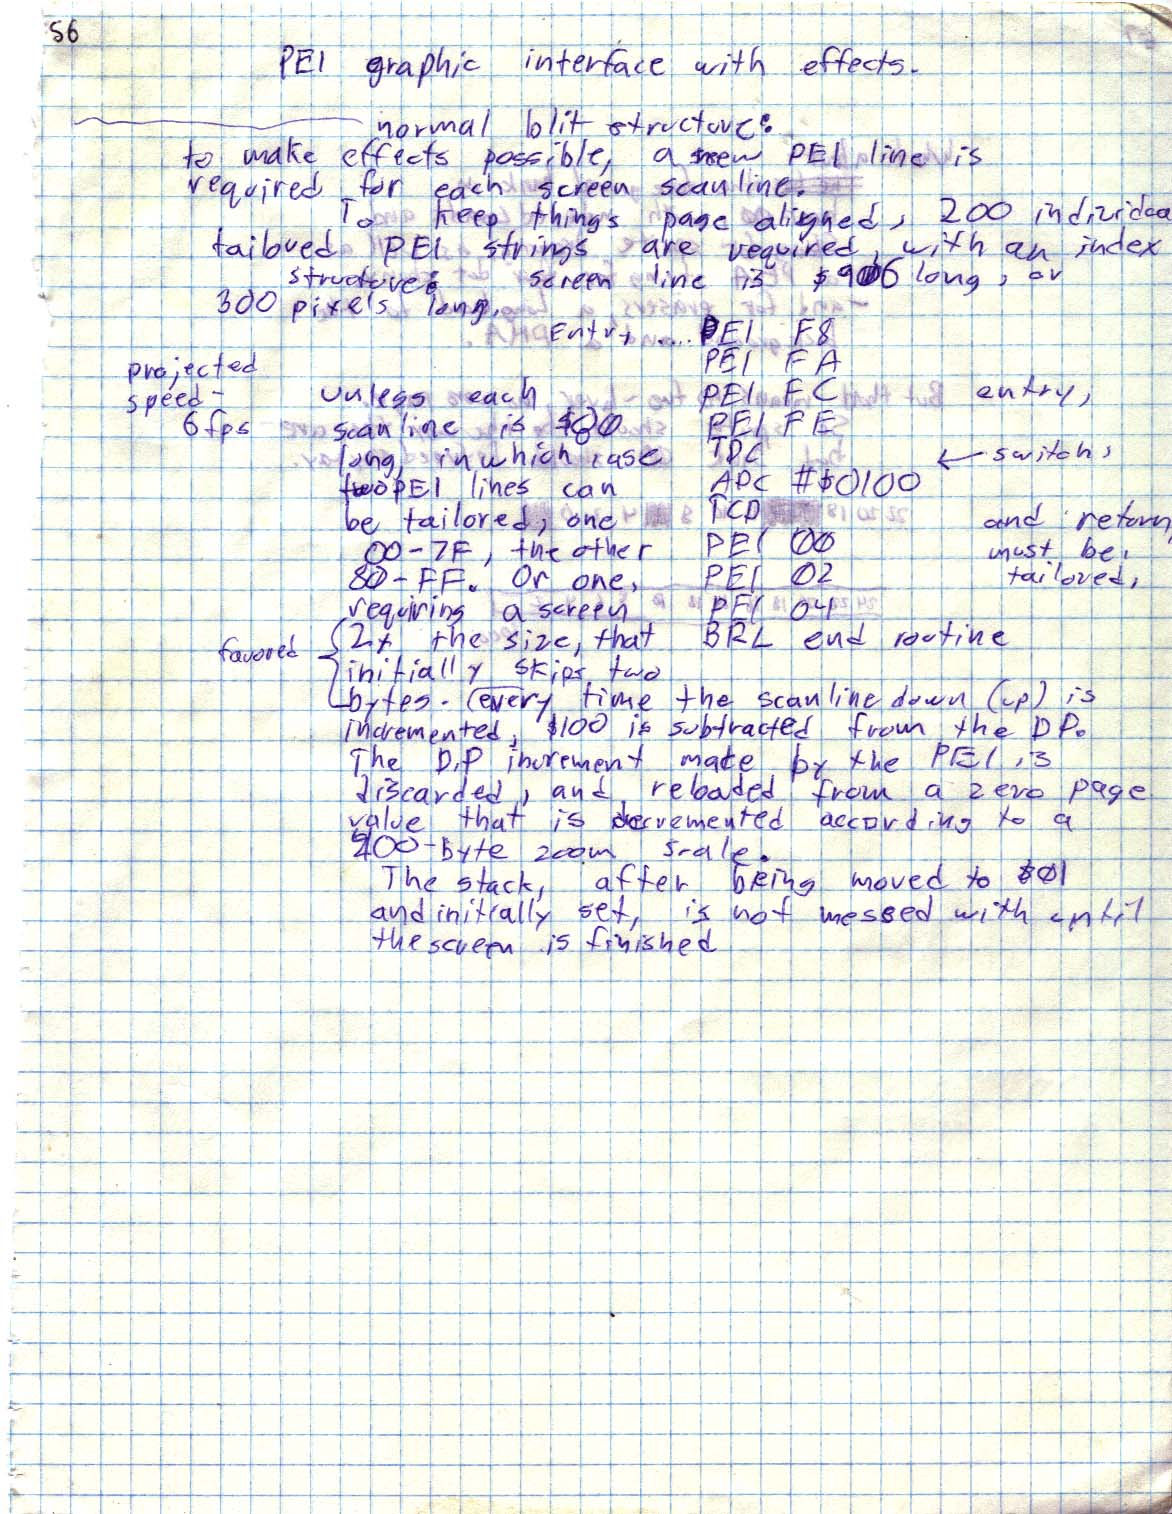 56
PEI graphic interface with effects.
normal blit structure:
to make effects possible, a new PEI line is
required for each screen scanline.
To keep things page aligned, 200 individual
tailored PEI strings are required, with an index
structure: screen line is $ long, or
300 pixels long.
Entry .... PEI F8
PEI FA
projected
speed - unless each PEI FC entry,
6fps scanline is $80 PEI FE
long, in which case TDC ← switch,
two PEI lines can ADC #$0100
be tailored, one TCD and return
00-7F, the other PEI 00 must be,
80-FF. Or one, PEI 02 tailored,
requiring a screen PEI 04
favored { 2x the size, that BRL end routine
initially skips two
bytes. (every time the scanline down (up) is
incremented, $100 is subtracted from the DP.
The D.P increment made by the PEI is
discarded, and reloaded from a zero page
value that is decremented according to a
200-byte zoom scale.
The stack, after being moved to $01
and initially set, is not messed with until
the screen is finished